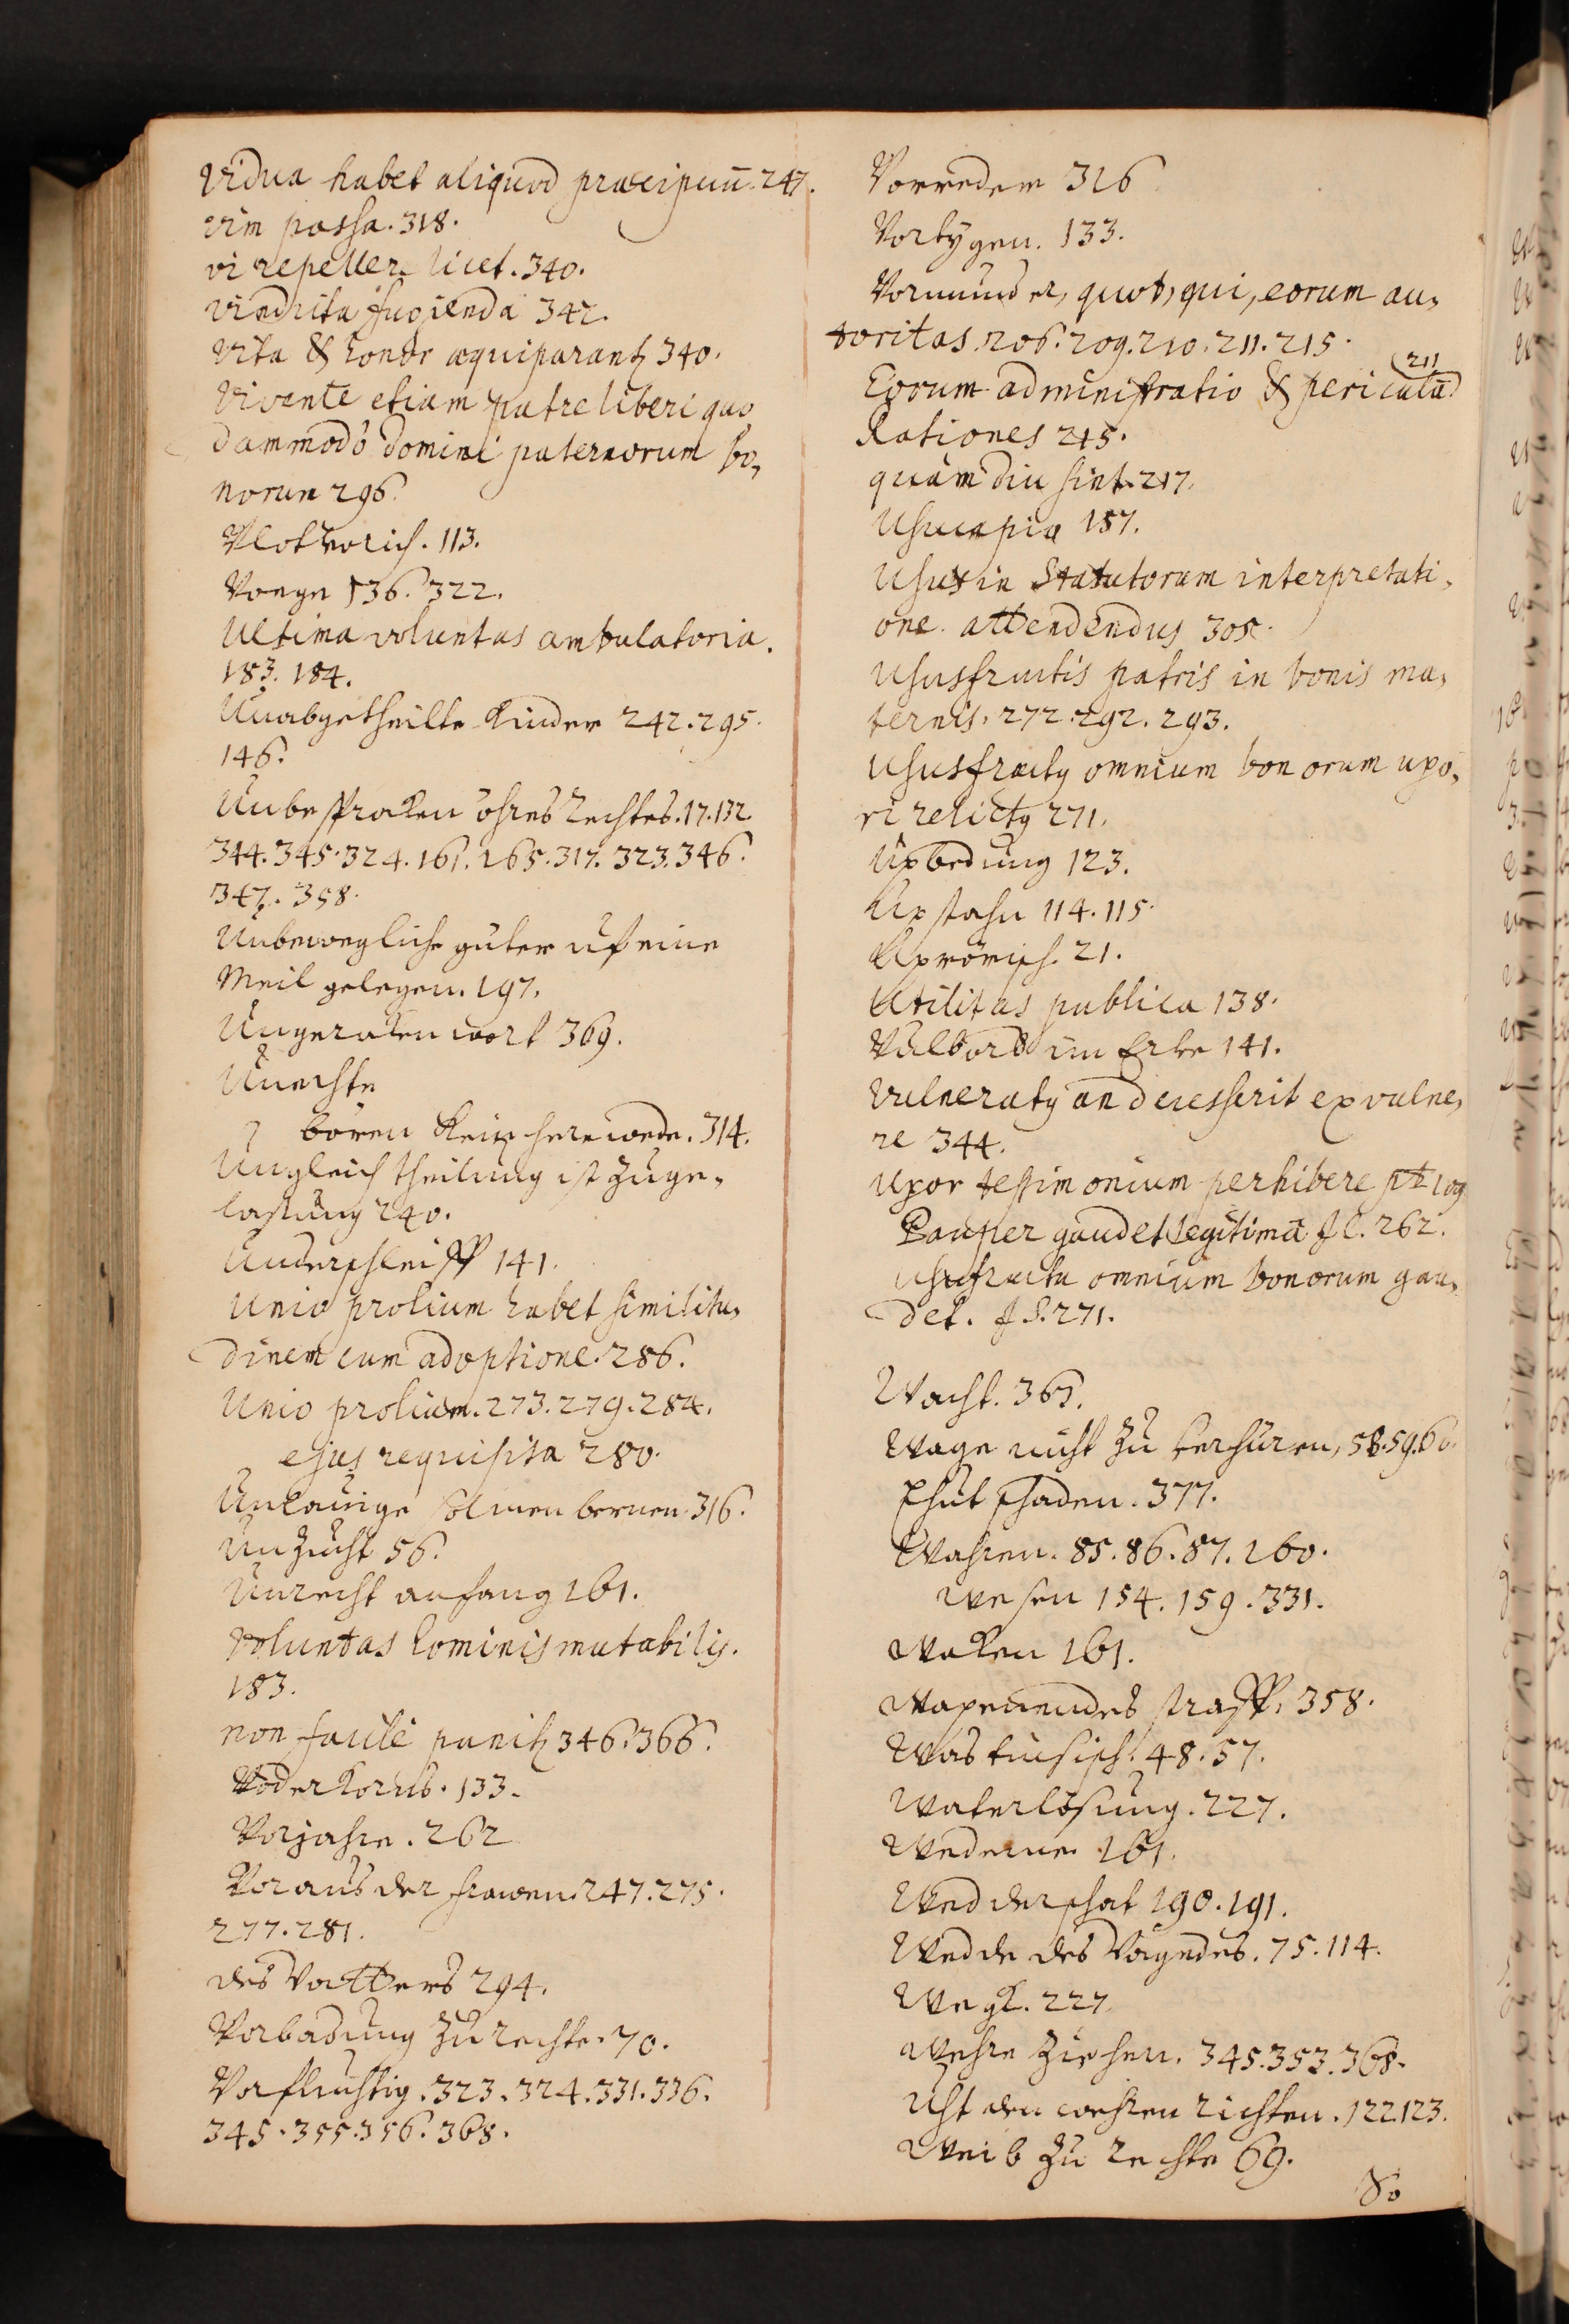 Vidua habet aliquod præcipuū. 247.
vim passa. 318.
vi repellere licet. 340.
vindicta fugienda 342.
Vita & honor æquiparant 340.
Vivente etiam patre liberi quo
dammodò domini paternorum bo,
norum 296.
113.
Voege 136. 322.
Ultima voluntas ambulatoria.
183. 184.
Unabgetheilte Kinder 242. 295.
146.
Unbesproken ohres Rechtes. 17. 132.
344. 345. 324. 161. 165. 317. 323. 346.
347. 358.
Unbewegliche güter uf eine
Meil gelegen. 197.
Ungeraten wort 369.
Unechte
boren Kein herewede. 314.
Ungleich theilung ist zuge,
lassung 240.
Underschleiff 141.
Unio prolium habet similitu,
dinem cum adoptione. 286.
Unio prolium. 273. 279. 284.
ejus requisita 280.
316.
Unzucht 56.
Unrecht anfang 161.
Voluntas hominis mutabilis.
183.
non facile punit 346. 366.
Voderkorns. 133.
Vorjahre. 262
Voraus der frawen. 247. 275.
277. 281.
des Vatters 294.
Vorbadung zu rechte. 70.
Vorfluchtig. 323. 324. 331. 336.
345. 355. 356. 368.
Vorreden 316
Vortygen. 133.
Vormünder, quot, qui, eorum au,
toritas. 206. 209. 210. 211. 215.
Eorum administratio & periculū 211
Rationes 215.
quàm diu sint. 217.
Usucapio 157.
Usus in Statutorum interpretati,
one attendendus 305.
Ususfructus patris in bonis ma,
ternis. 272. 292. 293.
Ususfructus omnium bonorum uxo,
ri relictus 271.
Uxbedung 123.
114. 115.
21.
Utilitas publica 138.
Vulbord im Erbe 141.
Vulneratus an decesserit ex vulne,
re 344.
Uxor testimonium perhibere pt 109
Pauper gaudet legitimâ 262.
Usufructu omnium bonorum gau,
det. 271.
Wacht. 365.
Wage nicht zu verhüren, 58. 59. 60.
schaden. 377.
Wahren. 85. 86. 87. 160.
Wesen 154. 159. 331.
Waken 161.
straff. 358.
48. 57.
Waterlösung. 227.
161.
Wedderschat 190. 191.
Wedde des Vagedes. 75. 114.
227
Wehre ziehen. 345. 353. 368.
Uht den wehren richten. 122. 123.
Weib zu rechte 69.
So